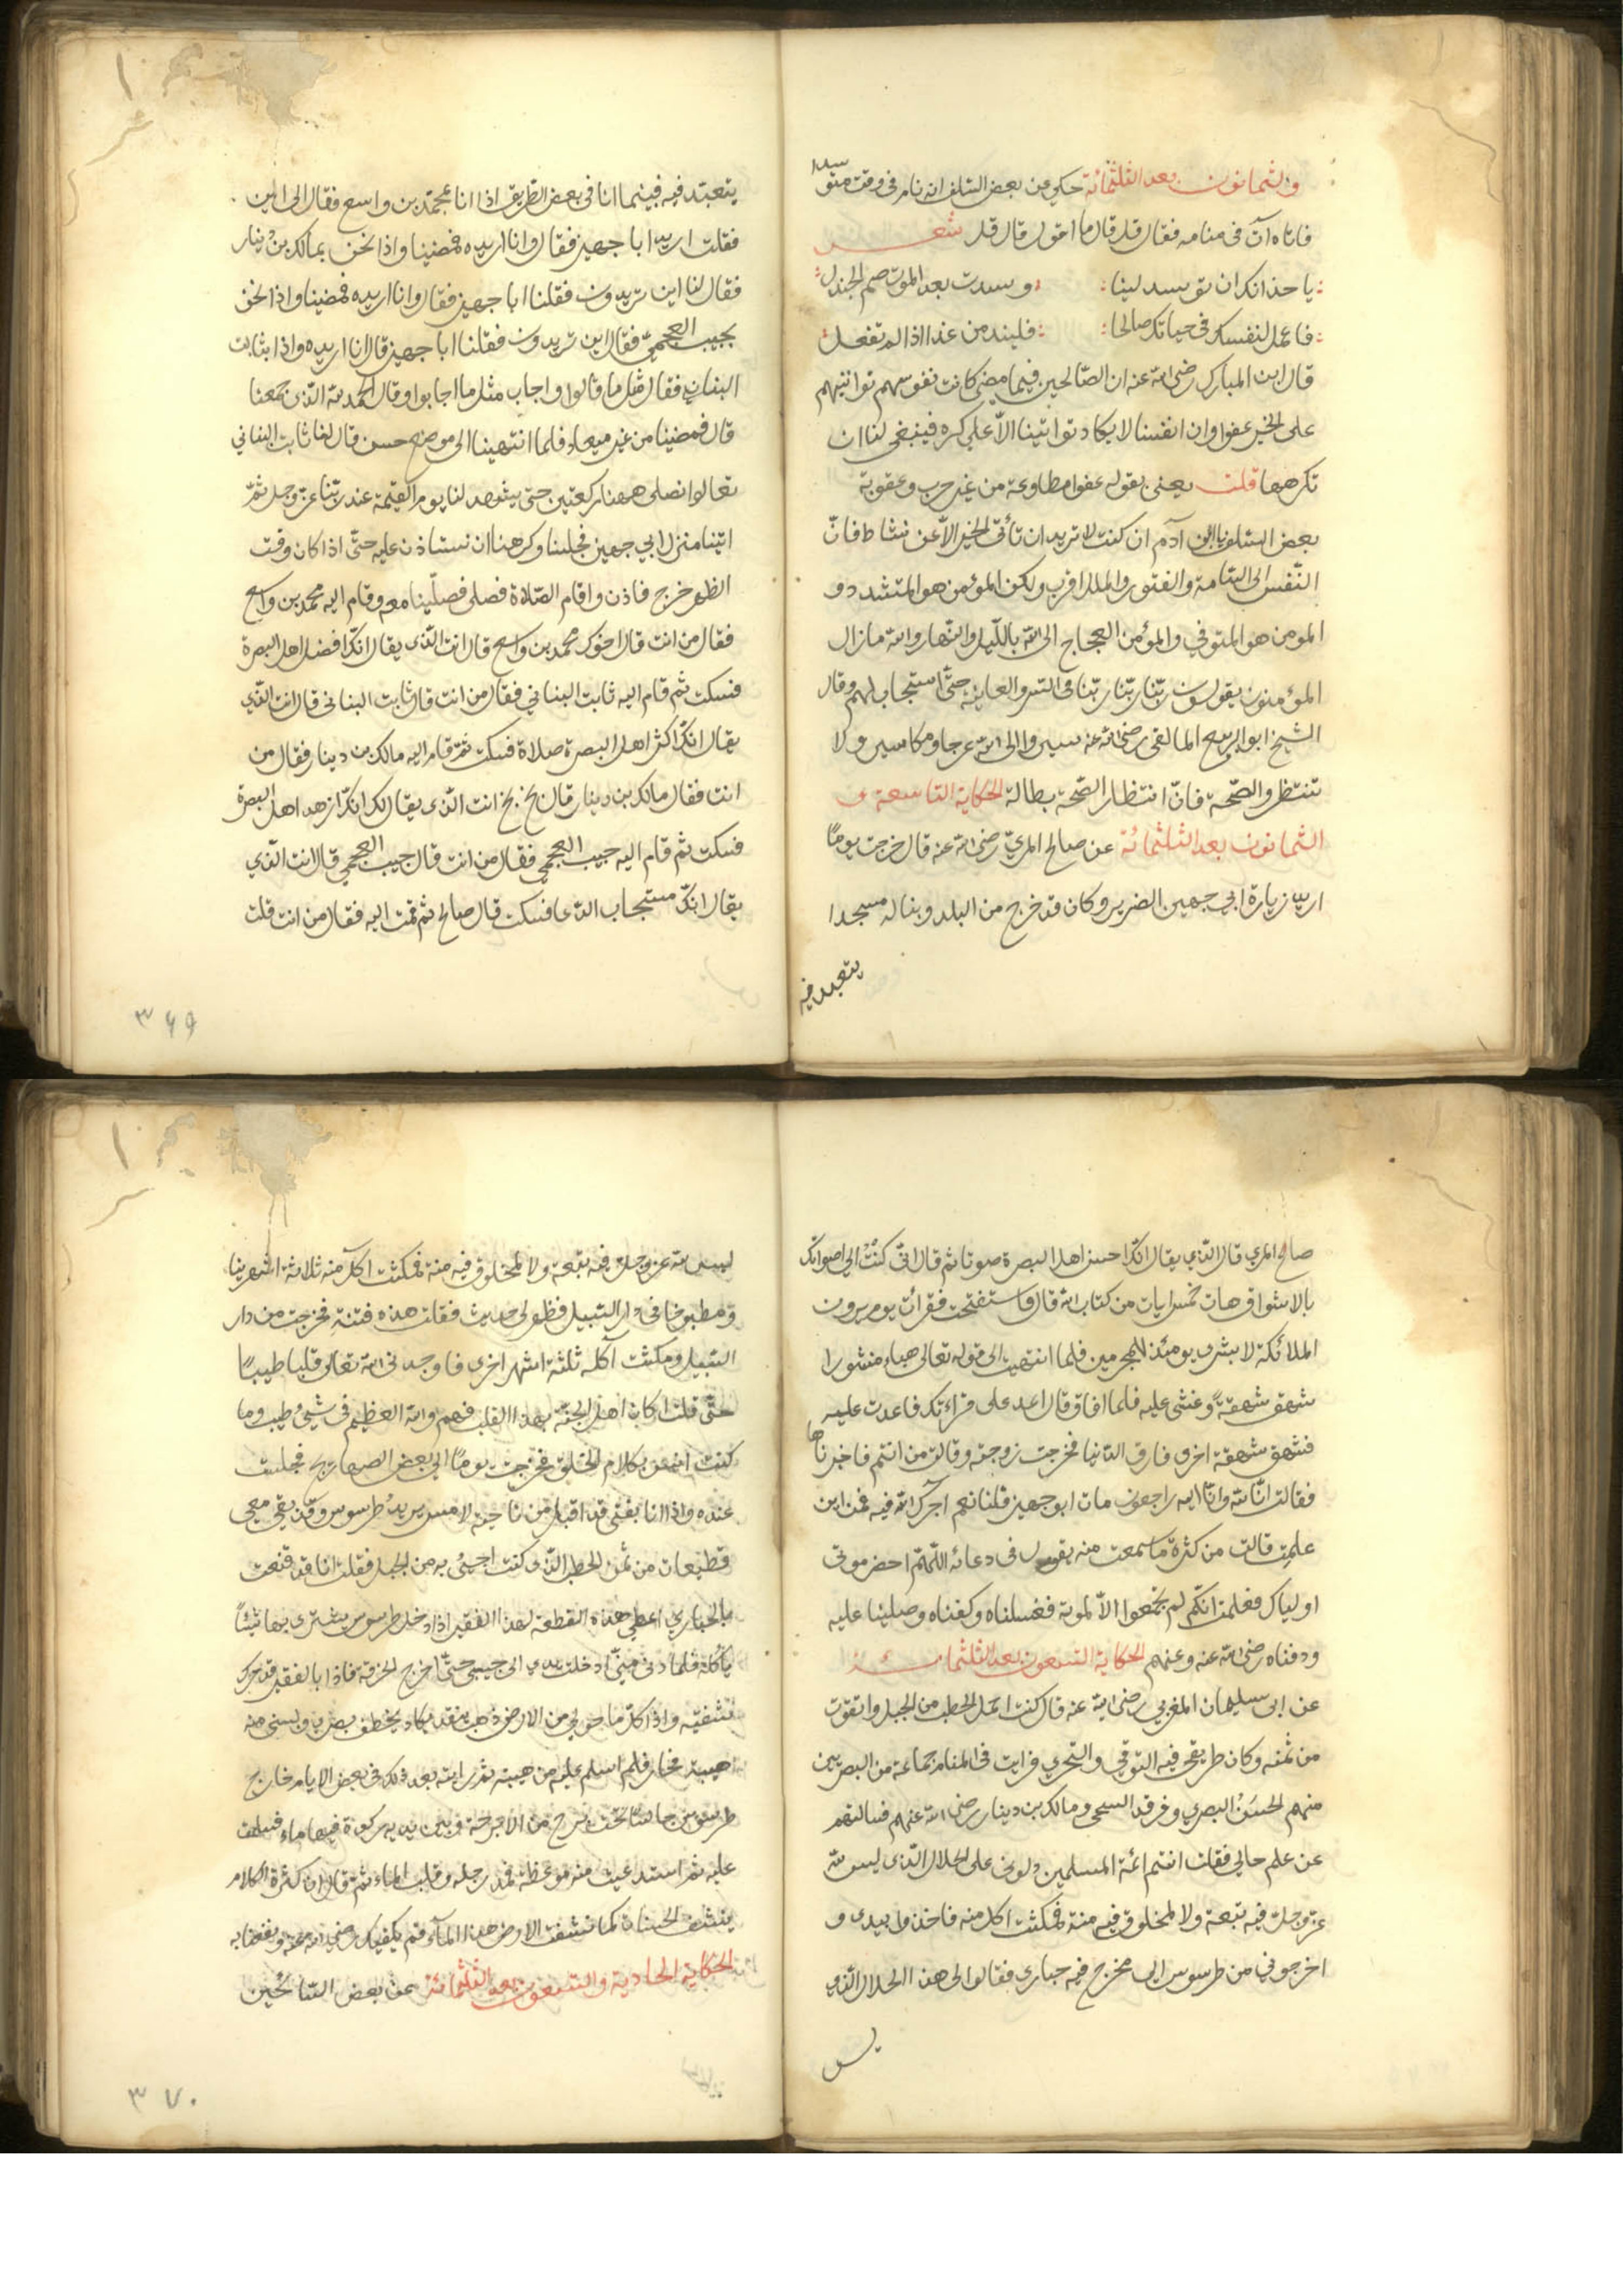 والثمانون بعد الثلثمائة حكي عن بعض السلف انه نام في وقت متوسدا
فاتاه آت في منامه فقال قل قال ما اقول قال قل شعر
يا خذ انك ان توسد لينا وسدت بعد الموت صم الجندل
فاعمل لنفسك في حياتك صالحا فليندمن غدا اذا لم تفعل
قال ابن المبارك رضي الله عنه ان الصالحين فيما مضى كانت نفوسهم تواتيهم
على الخير عفوا وان انفسنا لا يكاد تواتينا الا على كره فينبغي لنا ان
نكرهها قلت يعني بقوله عفوا مطاوعة من غير حرب وعقوبة
بعض السلف يا ابن آدم ان كنت لا تريد ان تأتي الخير الا عن نشاط فان
النفس الى السامة والفتور والملل اقرب ولكن المؤمن هو المتشدد و
المومن هو المتوفي والمؤمن العجاج الى الله بالليل والنهار والله مازال
المؤمنون يقولون ربنا ربنا ربنا في السر والعلانية حتى استجاب لهم وقال
الشيخ ابو الربيع المالقي رضي الله عنه سيروا الى الله عرجا ومكاسير ولا
تنتظروا الصحة فان انتظار الصحة بطالة الحكاية التاسعة و
الثمانون بعد الثلثمائة عن صالح المري رضي الله عنه قال خرجت يوما
اريد زيارة ابي جهين الضرير وكان قد خرج من البلد وبنا له مسجدا
يتعبد فيه
يتعبد فيه فبينما انا في بعض الطريق اذا انا بمحمد بن واسع فقال الى اين
فقلت اريد ابا جهين فقال وانا اريده فمضينا واذا نحن بمالك بن دينار
فقال لنا اين تريدون فقلنا ابا جهين فقال وانا اريده فمضينا واذا نحن
بحبيب العجمي فقال اين تريدون فقلنا ابا جهين قال انا اريده واذا بثابت
البناني فقال مثل ما قالوا واجاب مثل ما اجابوا وقال الحمد لله الذي جمعنا
قال فمضينا من غير ميعاد فلما انتهينا الى موضع حسن قال لنا ثابت البناني
تعالوا نصلي ههنا ركعتين حتى يشهد لنا يوم القيمة عند ربنا عز وجل ثم
اتينا منزل ابي جهين فجلسنا وكرهنا ان نستاذن عليه حتى اذا كان وقت
الظهر خرج فاذن واقام الصلاة فصلى فصلينا معه وقام اليه محمد بن واسع
فقال من انت قال اخوك محمد بن واسع قال انت الذي يقال انك افضل اهل البصرة
فسكت ثم قام اليه ثابت البناني فقال من انت قال ثابت البناني قال انت الذي
يقال انك اكثر اهل البصرة صلاة فسكت ثم قام اليه مالك بن دينار فقال من
انت فقال مالك بن دينار قال بخ بخ انت الذي يقال لك انك ازهد اهل البصرة
فسكت ثم قام اليه حبيب العجمي فقال من انت قال حبيب العجمي قال انت الذي
يقال انك مستجاب الدعا فسكت قال صالح ثم قمت اليه فقال من انت قلت
٣٦٩
صالح المري قال الذي يقال انك احسن اهل البصرة صوتا ثم قال اني كنت الى اصواتك
بالاشواق هات خمس ايات من كتاب الله قال فاستفتحت فقرات يوم يرون
الملائكة لا بشرى يومئذ للمجرمين فلما انتهيت الى قوله تعالى هباء منثورا
شهق شهقة وغشي عليه فلما افاق قال اعد علي قراءتك فاعدت عليه
فشهق شهقة اخرى فارق الدنيا فخرجت زوجته وقالت من انتم فاخبرناها
فقالت انا لله وانا اليه راجعون مات ابو جهين قلنا نعم آجرك الله فيه فمن اين
علمت قالت من كثرة ما سمعت منه يقول في دعائه اللهم احضر موتي
اولياك فعلمت انكم لم تجتمعوا الا لموته فغسلناه وكفناه وصلينا عليه
ودفناه رضي الله عنه وعنهم الحكاية التسعون بعد الثلثمائة
عن ابي سليمان المغربي رضي الله عنه قال كنت احمل الحطب من الجبل واتقوت
من ثمنه وكان طريقي فيه التوقي والتحري فرايت في المنام جماعة من البصريين
منهم الحسن البصري وفرقد السبخي ومالك بن دينار رضي الله عنهم فسالتهم
عن علم حالي فقلت انتم ائمة المسلمين دلوني على الحلال الذي ليس لله
عز وجل فيه تبعة ولا لمخلوق فيه منة فمكثت اكل منه فاخذوا بيدي و
اخرجوني من طرسوس الى مخرج فيه حباري فقالوا لي هذا الحلال الذي
ليس
ليس لله عز وجل فيه تبعة ولا لمخلوق فيه منة فمكثت اكل منه ثلاثة اشهر نيا
ومطبوخا في دار السبيل فظهر لي حديث فقلت هذه فتنة فخرجت من دار
السبيل ومكثت آكله ثلثة اشهر اخرى فاوجدني الله تعالى قلبا طيبا
حتى قلت ان كان اهل الجنة بهذا القلب فهم والله العظيم في شيء طيب وما
كنت انس بكلام الخلق فخرجت يوما الى بعض الصهاريج فجلست
عنده واذا انا بفتى قد اقبل من ناحية لامس يريد طرسوس وقد بقي معي
قطيعات من ثمن الحطب الذي كنت اجئ به من الجبل فقلت انا قد قنعت
بالحباري اعطي هذه القطعة لهذا الفقير اذا دخل طرسوس يشتري بها شيئا
ياكله فلما دنى مني ادخلت يدي الى جيبي حتى اخرج الخرقة فاذا بالفقير قد حرك
شفتيه واذا كل ما حولي من الارض ذهب يتقد يكاد يخطف بصري ولبسني منه
هيبة فجاز فلم اسلم عليه من هيبته ثم رايته بعد ذلك في بعض الايام خارج
طرسوس جالسا تحت برج من الابرجة وبين يديه ركوة فيها ماء فسلمت
عليه ثم استدعيت منه موعظة فمد رجله وقلب الماء ثم قال ان كثرة الكلام
ينشف الحسنات كما نشفت الارض هذا الماء قم يكفيك رضي الله عنه ونفعنا به
الحكاية الحادية والتسعون بعد الثلثمائة عن بعض السائحين
٣٧٠